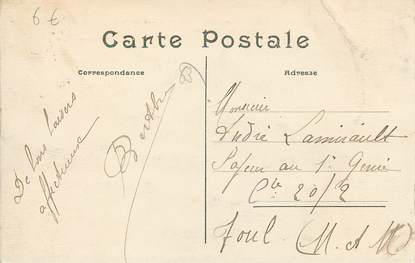 6€
Carte Postale
Correspondance
Adresse
De bons baisers
affectueux
Berthe
Monsieur
André Lamirault
Sapeur au 1er Génie
Cie 20/2
Toul (M. et M)